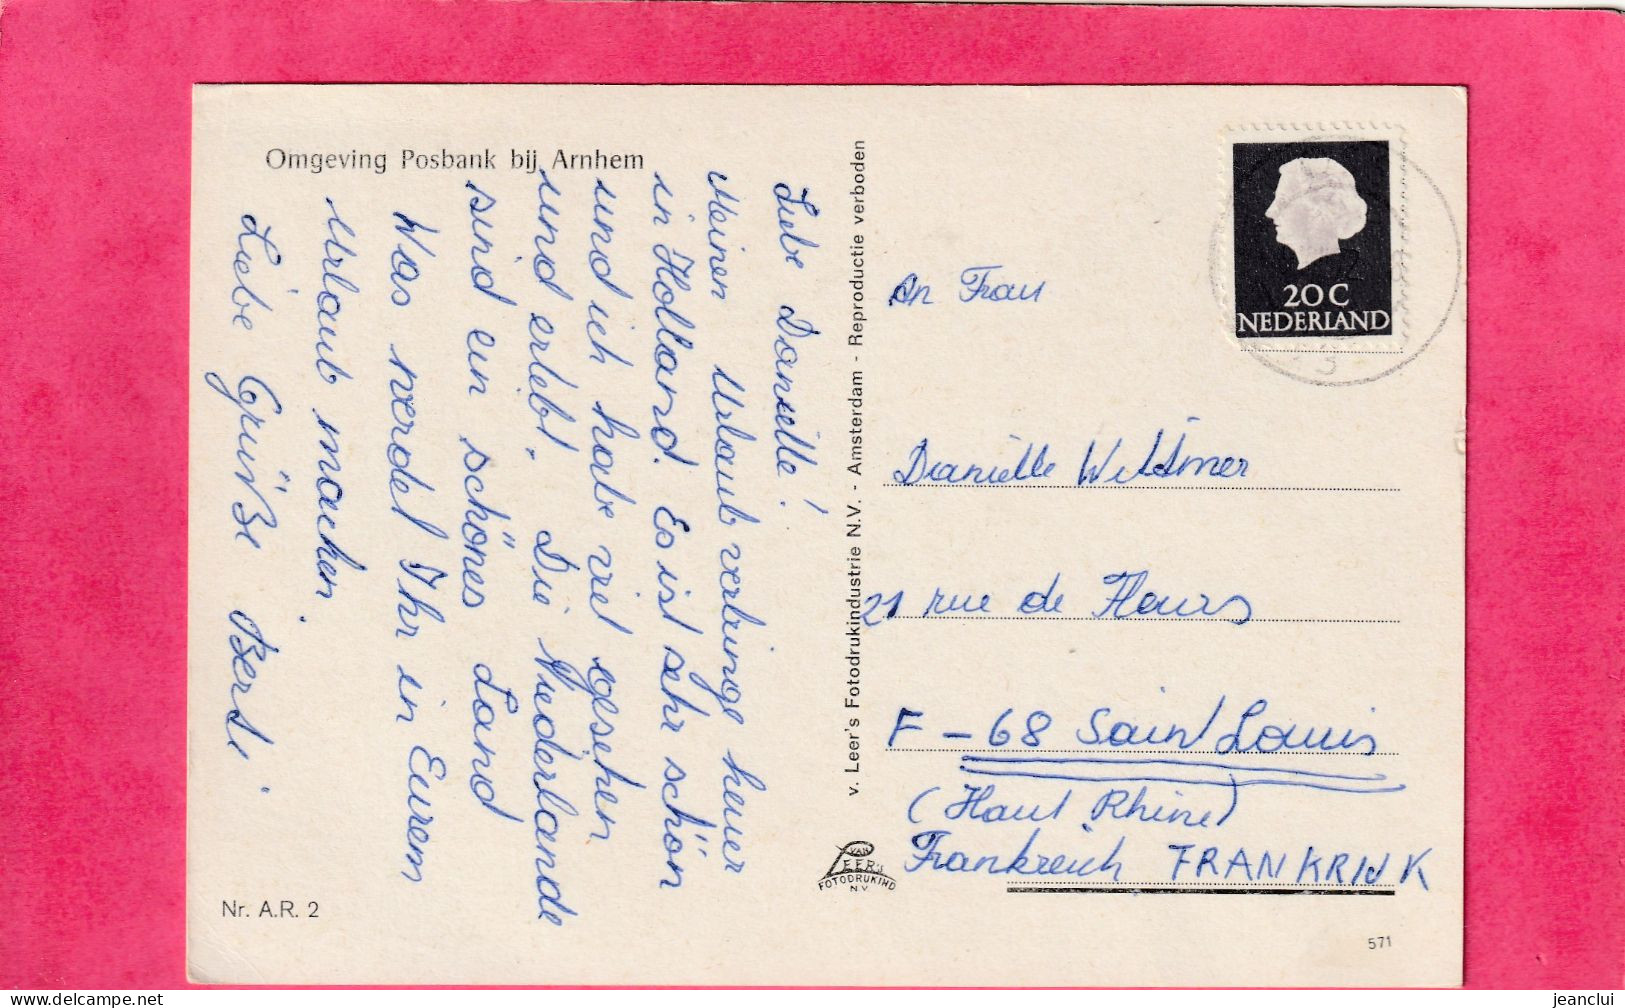 Omgeving Posbank bij Arnhem
Liebe Danielle!
Meinen Urlaub verbringe heuer
in Holland. Es ist sehr schön
und ich habe viel gesehen
und erlebt. Die Niederlande
sind ein schönes Land
Was werdet Ihr in Eurem
Urlaub machen.
Liebe Grüße Berti.
Nr. A.R. 2
v. Leer's Fotodrukindustrie N.V. - Amsterdam - Reproductie verboden
VAN
LEER'S
FOTODRUKIND
N.V.
20 C
NEDERLAND
An Frau
Danielle Wittmer
21 rue de Fleurs
F - 68 Saint Louis
(Haut Rhine)
Frankreich FRANKRIJK
571
jeanclui